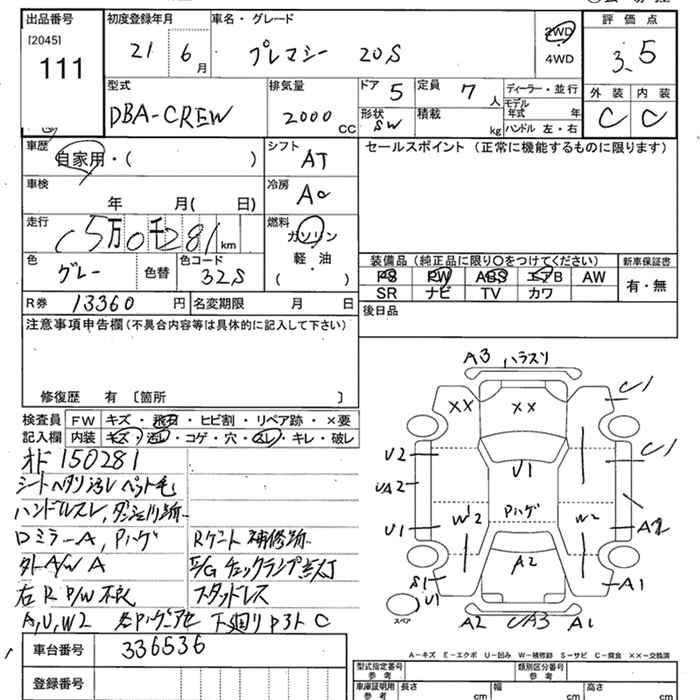 出品番号 初度登録年月 車名・グレード 2WD 評価点
[2045] 21 6月 プレマシー 20S 4WD 3.5
111
型式 排気量 ドア 5 定員 7人 ディーラー・並行 外装 内装
DBA-CREW 2000 CC 形状 SW 積載 kg モデル年式 年 C C
ハンドル 左・右
車歴 自家用・( ) シフト AT セールスポイント (正常に機能するものに限ります)
車検 年 月( 日) 冷房 AC
走行 15万0千281km 燃料 ガソリン・軽油 ( )
色 グレー 色替 色コード 32S
装備品 (純正品に限り○をつけてください) 新車保証書
PS PW ABS エアB AW 有・無
SR ナビ TV カワ
R券 13360 円 名変期限 月 日
後日品
注意事項申告欄(不具合内容等は具体的に記入して下さい)
修復歴 有 〔箇所 〕
検査員 FW キズ・飛石・ヒビ割・リペア跡・×要
記入欄 内装 キズ・汚レ・コゲ・穴・スレ・キレ・破レ
オド150281
シートヘタリ汚レ ペット毛
ハンドルスレ,
ロミラーA, Pハゲ Rゲート補修跡
外A/W A E/Gチェックランプ点灯
右R P/W不良 スタッドレス
A,U,W2 下廻りサビ C
A3 ハラスリ
U1
XX XX
U2 U1 U1
UA2
U1 W2 Pハゲ W2
A2
S1 U1 A1
スペア A2 UA3 A1
車台番号 336536
登録番号
A-キズ E-エクボ U-凹み W-補修跡 S-サビ C-腐食 ××-交換済
型式指定番号 参考 類別区分番号 参考
車庫証明用 参考 長さ cm 幅 cm 高さ cm